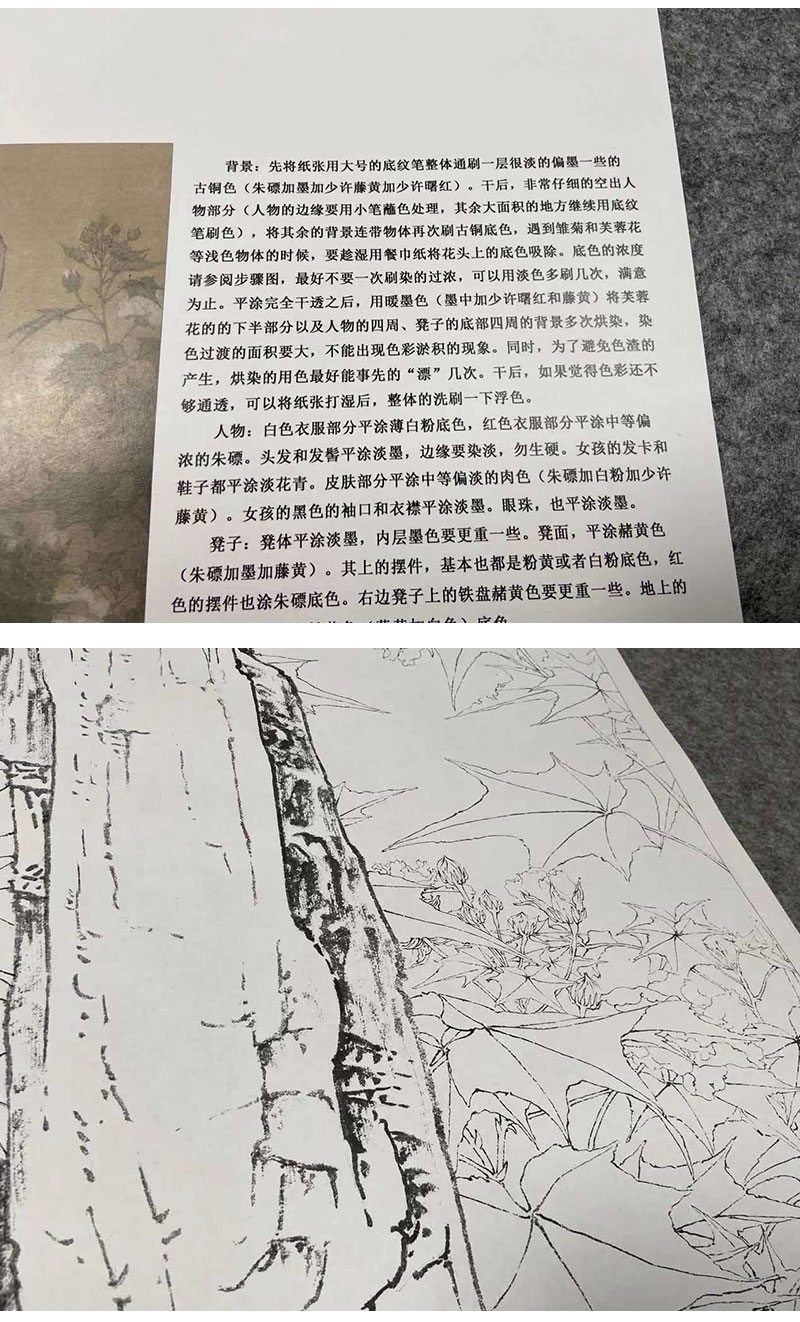 背景：先将纸张用大号的底纹笔整体通刷一层很淡的偏墨一些的
古铜色（朱磦加墨加少许藤黄加少许曙红）。干后，非常仔细的空出人
物部分（人物的边缘要用小笔蘸色处理，其余大面积的地方继续用底纹
笔刷色），将其余的背景连带物体再次刷古铜底色，遇到雏菊和芙蓉花
等浅色物体的时候，要趁湿用餐巾纸将花头上的底色吸除。底色的浓度
请参阅步骤图，最好不要一次刷染的过浓，可以用淡色多刷几次，满意
为止。平涂完全干透之后，用暖墨色（墨中加少许曙红和藤黄）将芙蓉
花的的下半部分以及人物的四周、凳子的底部四周的背景多次烘染，染
色过渡的面积要大，不能出现色彩淤积的现象。同时，为了避免色渣的
产生，烘染的用色最好能事先的“漂”几次。干后，如果觉得色彩还不
够通透，可以将纸张打湿后，整体的洗刷一下浮色。
人物：白色衣服部分平涂薄白粉底色，红色衣服部分平涂中等偏
浓的朱磦。头发和发髻平涂淡墨，边缘要染淡，勿生硬。女孩的发卡和
鞋子都平涂淡花青。皮肤部分平涂中等偏淡的肉色（朱磦加白粉加少许
藤黄）。女孩的黑色的袖口和衣襟平涂淡墨。眼珠，也平涂淡墨。
凳子：凳体平涂淡墨，内层墨色要更重一些。凳面，平涂赭黄色
（朱磦加墨加藤黄）。其上的摆件，基本也都是粉黄或者白粉底色，红
色的摆件也涂朱磦底色。右边凳子上的铁盘赭黄色要更重一些。地上的